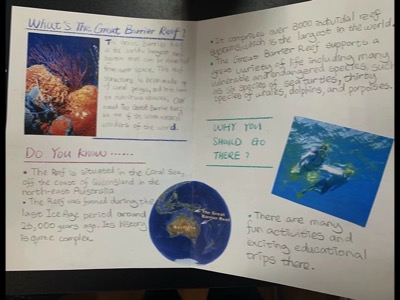 What's The Great Barrier Reef?
The Great Barrier Reef
is the world's largest reef
system that can be
from outer space. This reef
structure is
of coral polyps
named The Great Barrier Reef
as one of the seven natural
wonders of the world.
Do You Know......
• The Reef is situated in the Coral Sea,
off the coast of Queensland in the
north-east Australia.
• The Reef was formed during the
last Ice Age period around
25,000 years ago. Its history
is quite complex.
The Great
Barrier Reef
Australia
• It comprises over 2000 individual reef
systems which is the largest in the world.
• The Great Barrier Reef supports a
great variety of life including many
vulnerable and endangered species such
as six species of sea turtles, thirty
species of whales, dolphins, and porpoises.
WHY YOU
SHOULD GO
THERE?
• There are many
fun activities and
exciting educational
trips there.